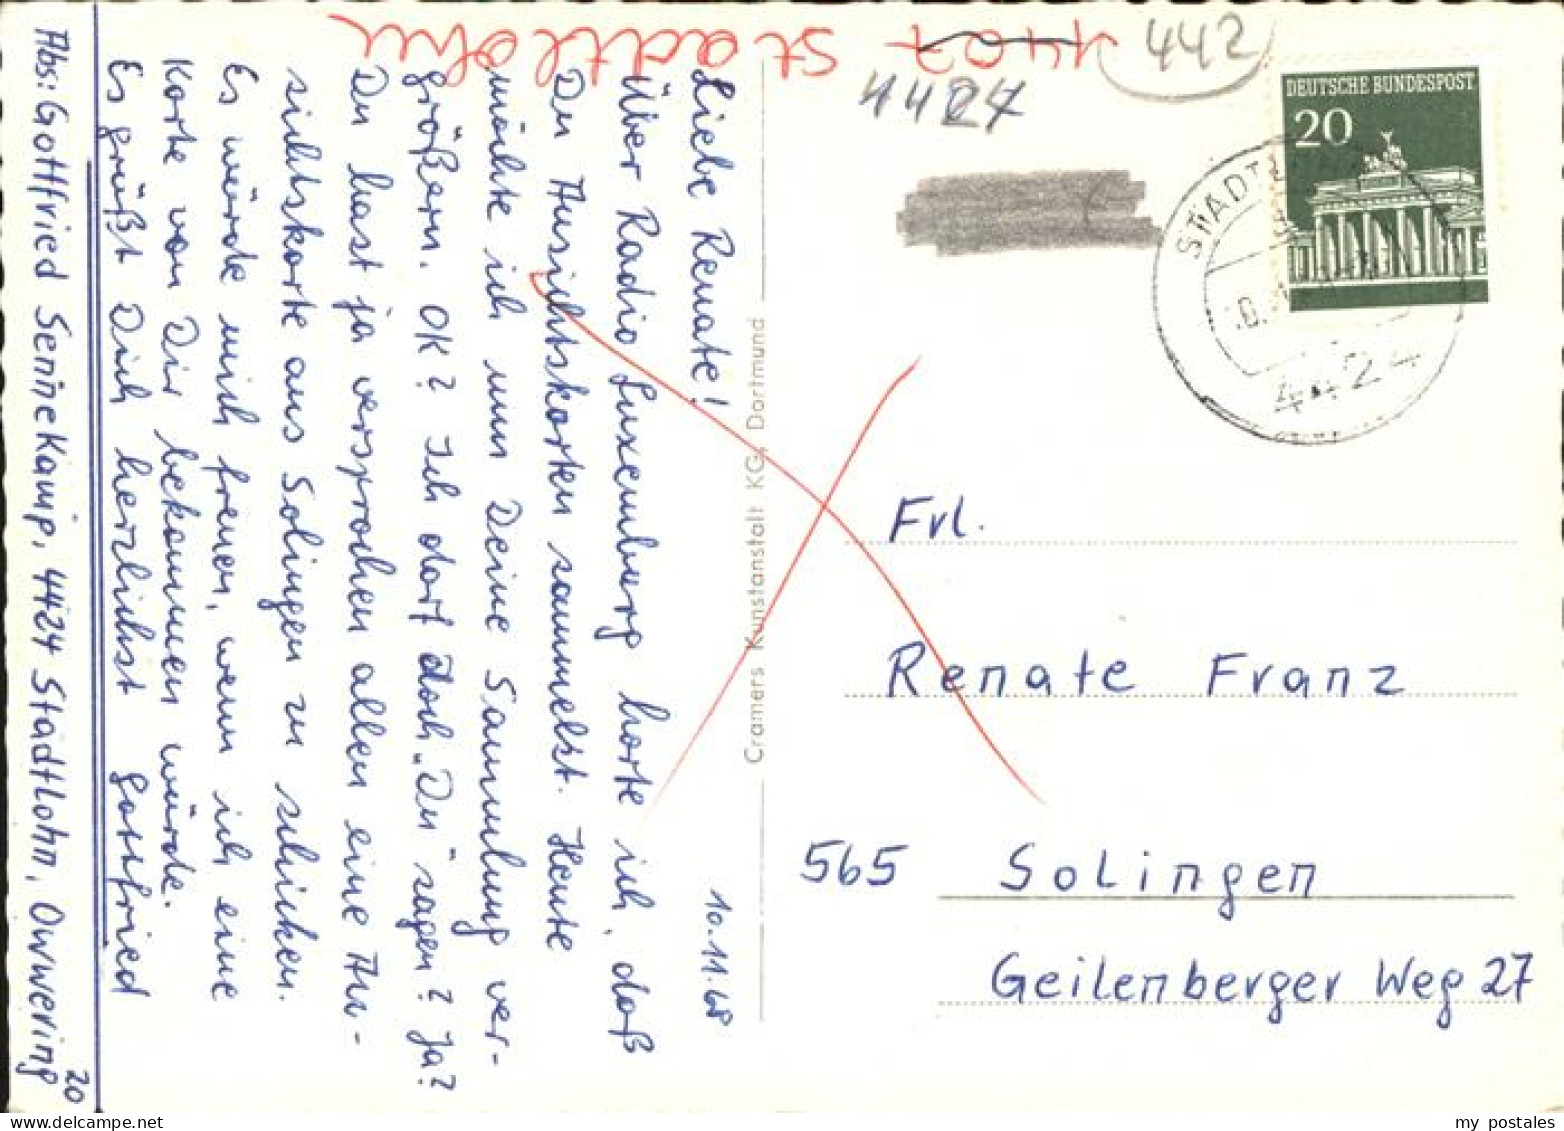 10.11.68
Liebe Renate!
Über Radio Luxemburg horte ich, daß
Du Ansichtskarten sammelst. Heute
möchte ich nun Deine Sammlung ver-
größern. OK? Ich darf doch „Du“ sagen? Ja?
Du hast ja versprochen allen eine An-
sichtskarte aus Solingen zu schicken.
Es würde mich freuen, wenn ich eine
Karte von Dir bekommen würde.
Es grüßt Dich herzlichst Gottfried
Abs: Gottfried Sennekamp, 4424 Stadtlohn, Owwering
20
Cramers Kunstanstalt KG, Dortmund
4407 Stadtlohn
442
4424
DEUTSCHE BUNDESPOST
20
STADTL
4424
Frl.
Renate Franz
565 Solingen
Geilenberger Weg 27
my postales